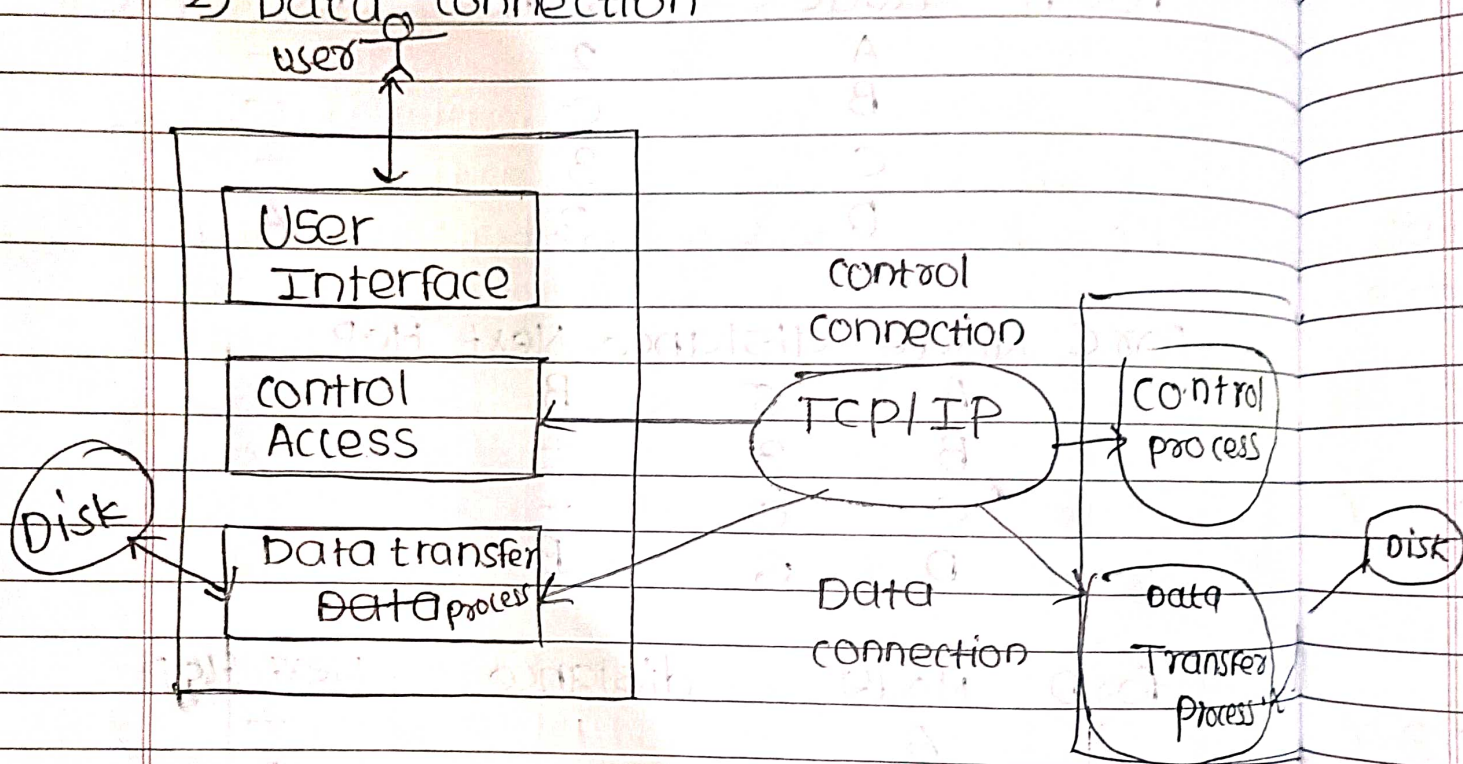 2) Data connection
user
User
Interface
control
Access
Data transfer
Data process
Disk
control
connection
TCP/IP
Data
connection
control
process
Data
Transfer
Process
Disk